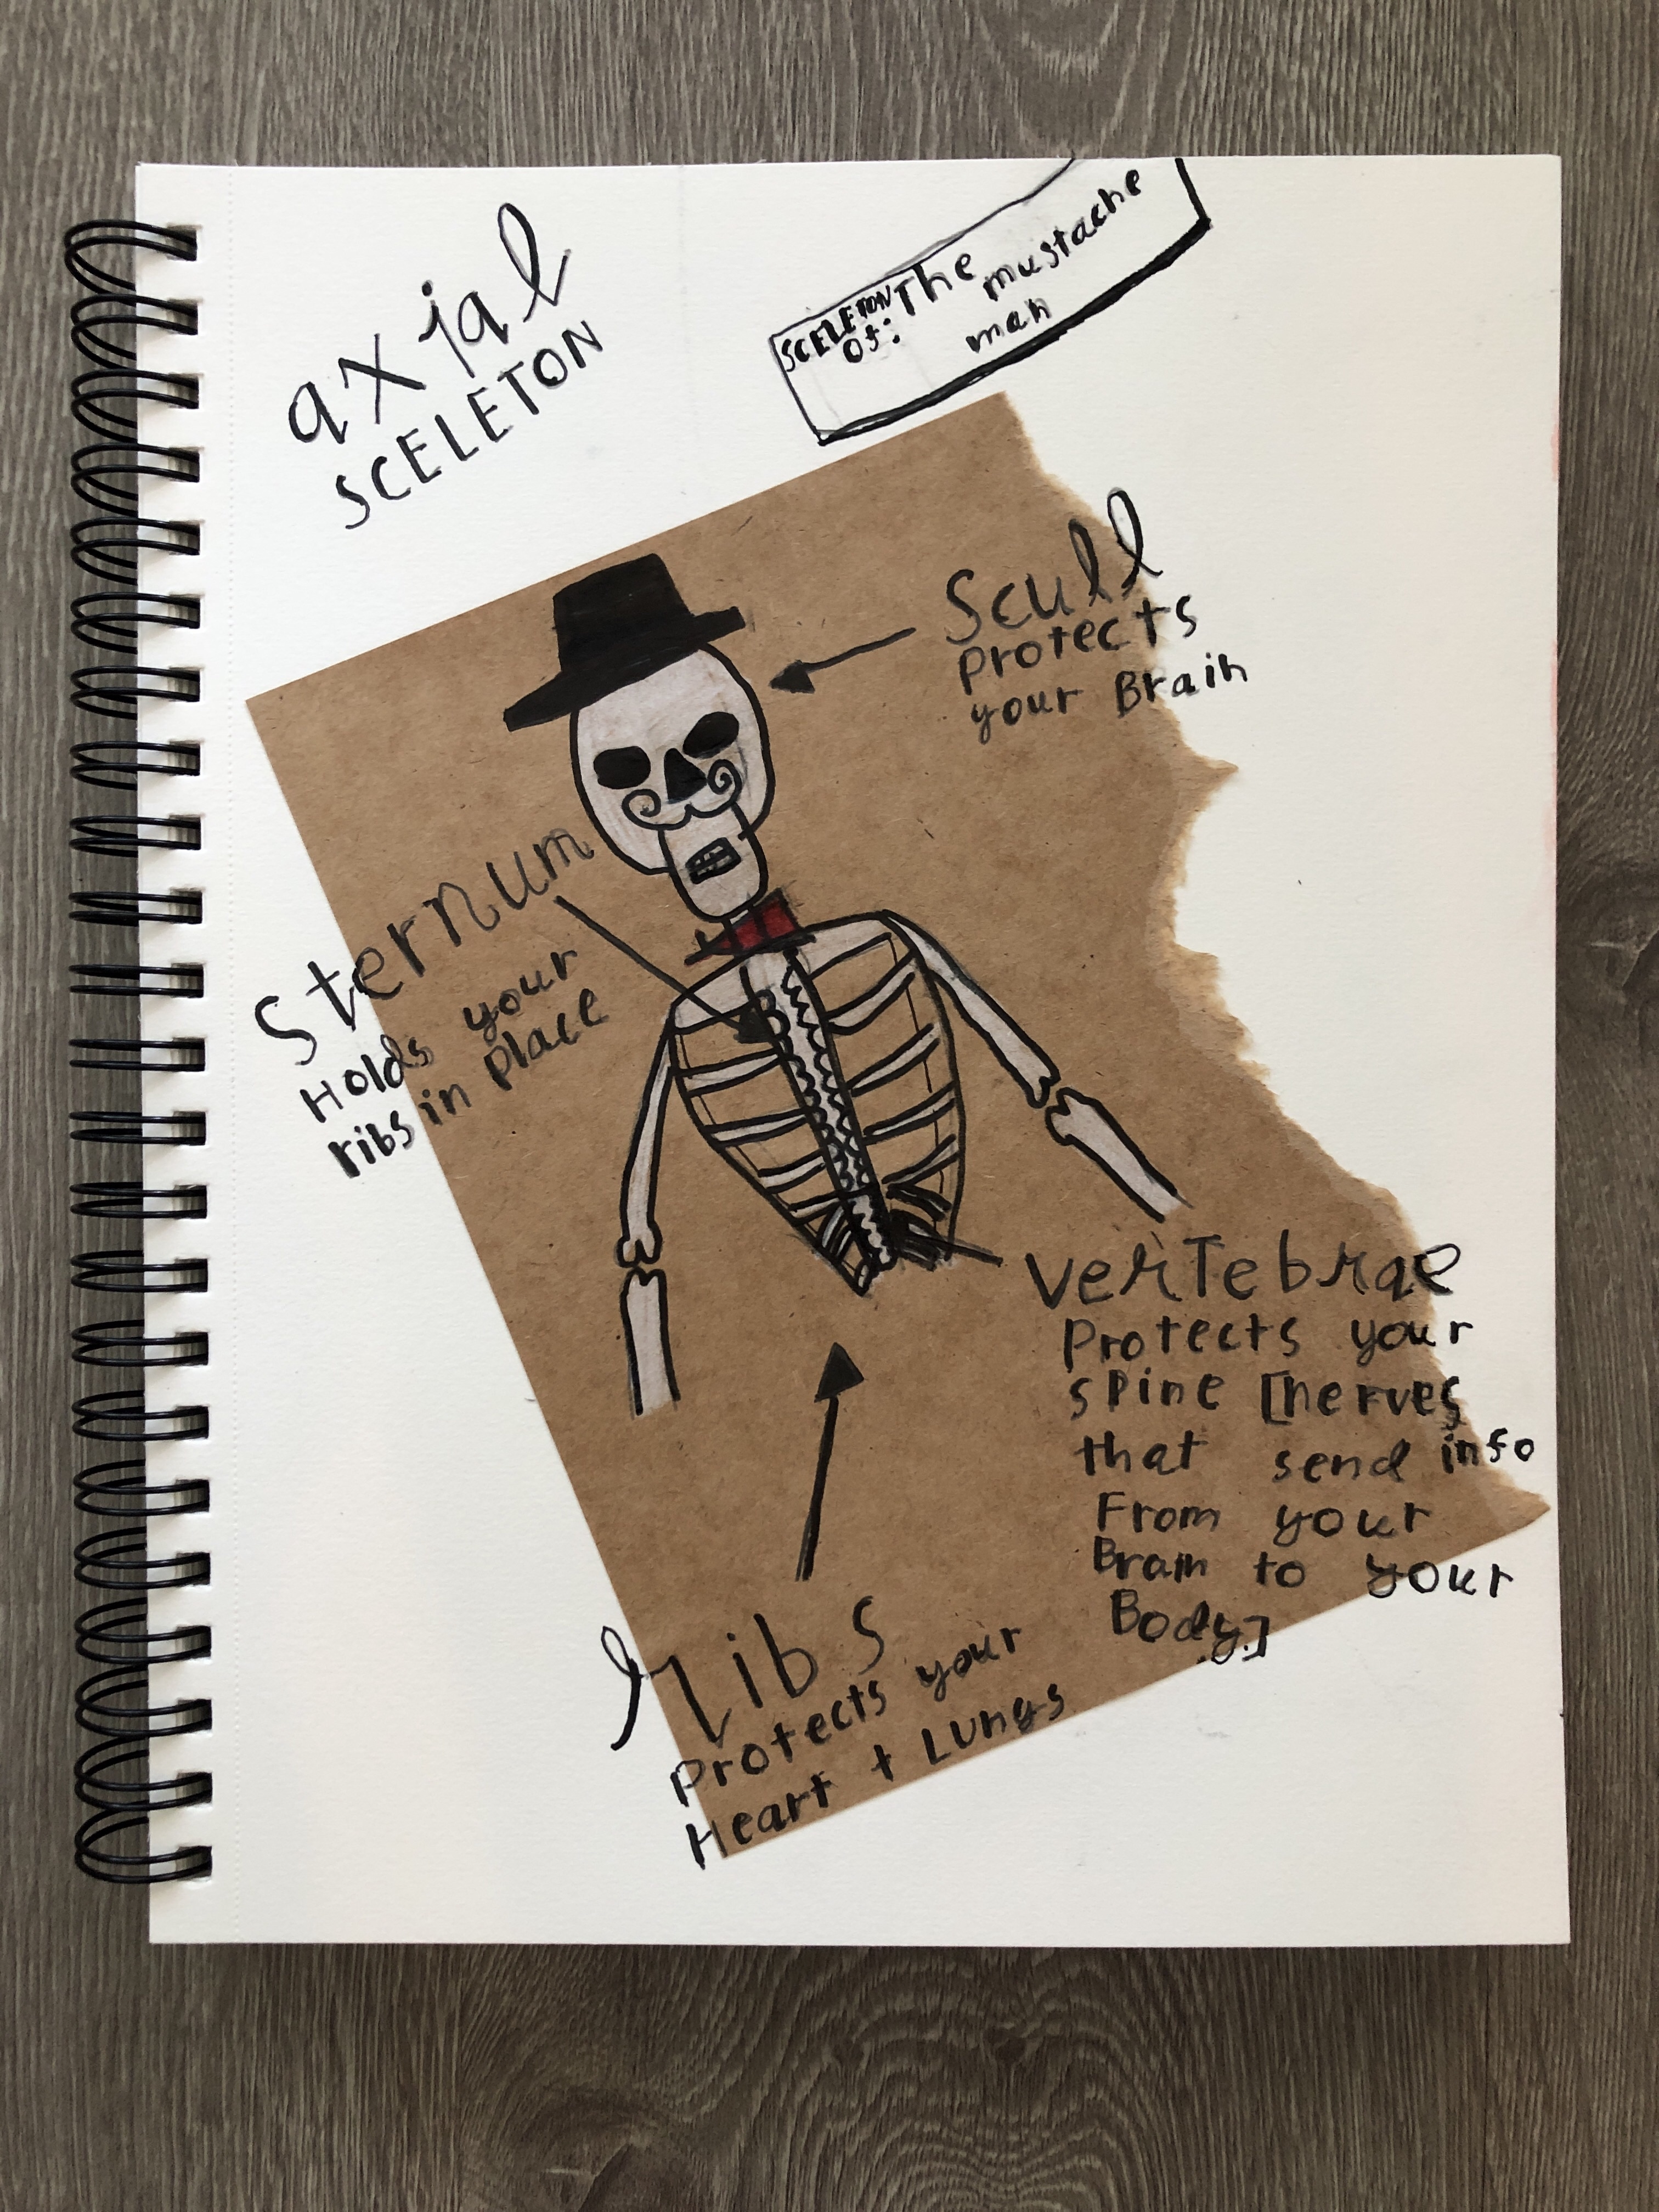 axial
SCELETON
SCELETON The mustache
of: man
Scull
Protects
your Brain
Sternum
Holds your
ribs in Place
VerTebrae
Protects your
spine [nerves
that send info
From your
Brain to your
Body.]
Ribs
Protects your
Heart + Lungs